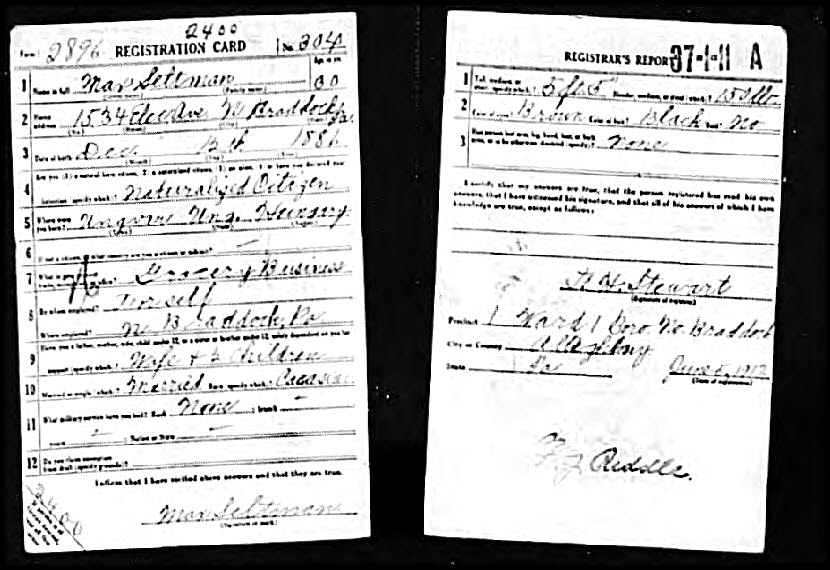 2400
Form 1 2896 REGISTRATION CARD No. 304
Age, in yrs.
1 Name in full Max Seltman 30
(Given name) (Family name)
2 Home address 1534 Elec. Ave. N. Braddock, Pa.
(No.) (Street) (City) (State)
3 Date of birth Dec. 13th 1886
(Month) (Day) (Year)
Are you (1) a natural born citizen, (2) a naturalized citizen, (3) an alien, (4) or have you declared your
4 intention (specify which)? Naturalized Citizen
5 Where were you born? Ung. Hungary
(Town) (State) (Nation)
6 If not a citizen, of what country are you a citizen or subject? —
7 What is your present trade, occupation, or office? Grocery Business
8 By whom employed? For self
Where employed? No. Braddock, Pa
Have you a father, mother, wife, child under 12, or a sister or brother under 12, solely dependent on you for
9 support (specify which)? Wife & Children
10 Married or single (which)? Married Race (specify which)? Caucasian
11 What military service have you had? Rank None ; branch —
years — ; Nation or State —
12 Do you claim exemption
from draft (specify grounds)?
I affirm that I have verified above answers and that they are true.
Max Seltman
(Signature or mark)
2400
REGISTRAR'S REPORT 37-1-11 A
1 Tall, medium, or short (specify which)? 5 ft 5" Slender, medium, or stout (which)?
2 Color of eyes? Brown Color of hair? Black Bald? No
3 Has person lost arm, leg, hand, foot, or both
eyes, or is he otherwise disabled (specify)? None
I certify that my answers are true, that the person registered has read his own
answers, that I have witnessed his signature, and that all of his answers of which I have
knowledge are true, except as follows:
H. Stewart
(Signature of registrar)
Precinct 1 Ward 1 Boro. No. Braddock
City or County Allegheny
State Pa June 5, 1917
(Date of registration)
F. J. Riddle.